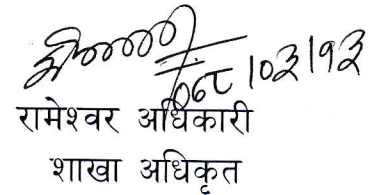 ०६८/०३/१३
रामेश्वर अधिकारी
शाखा अधिकृत